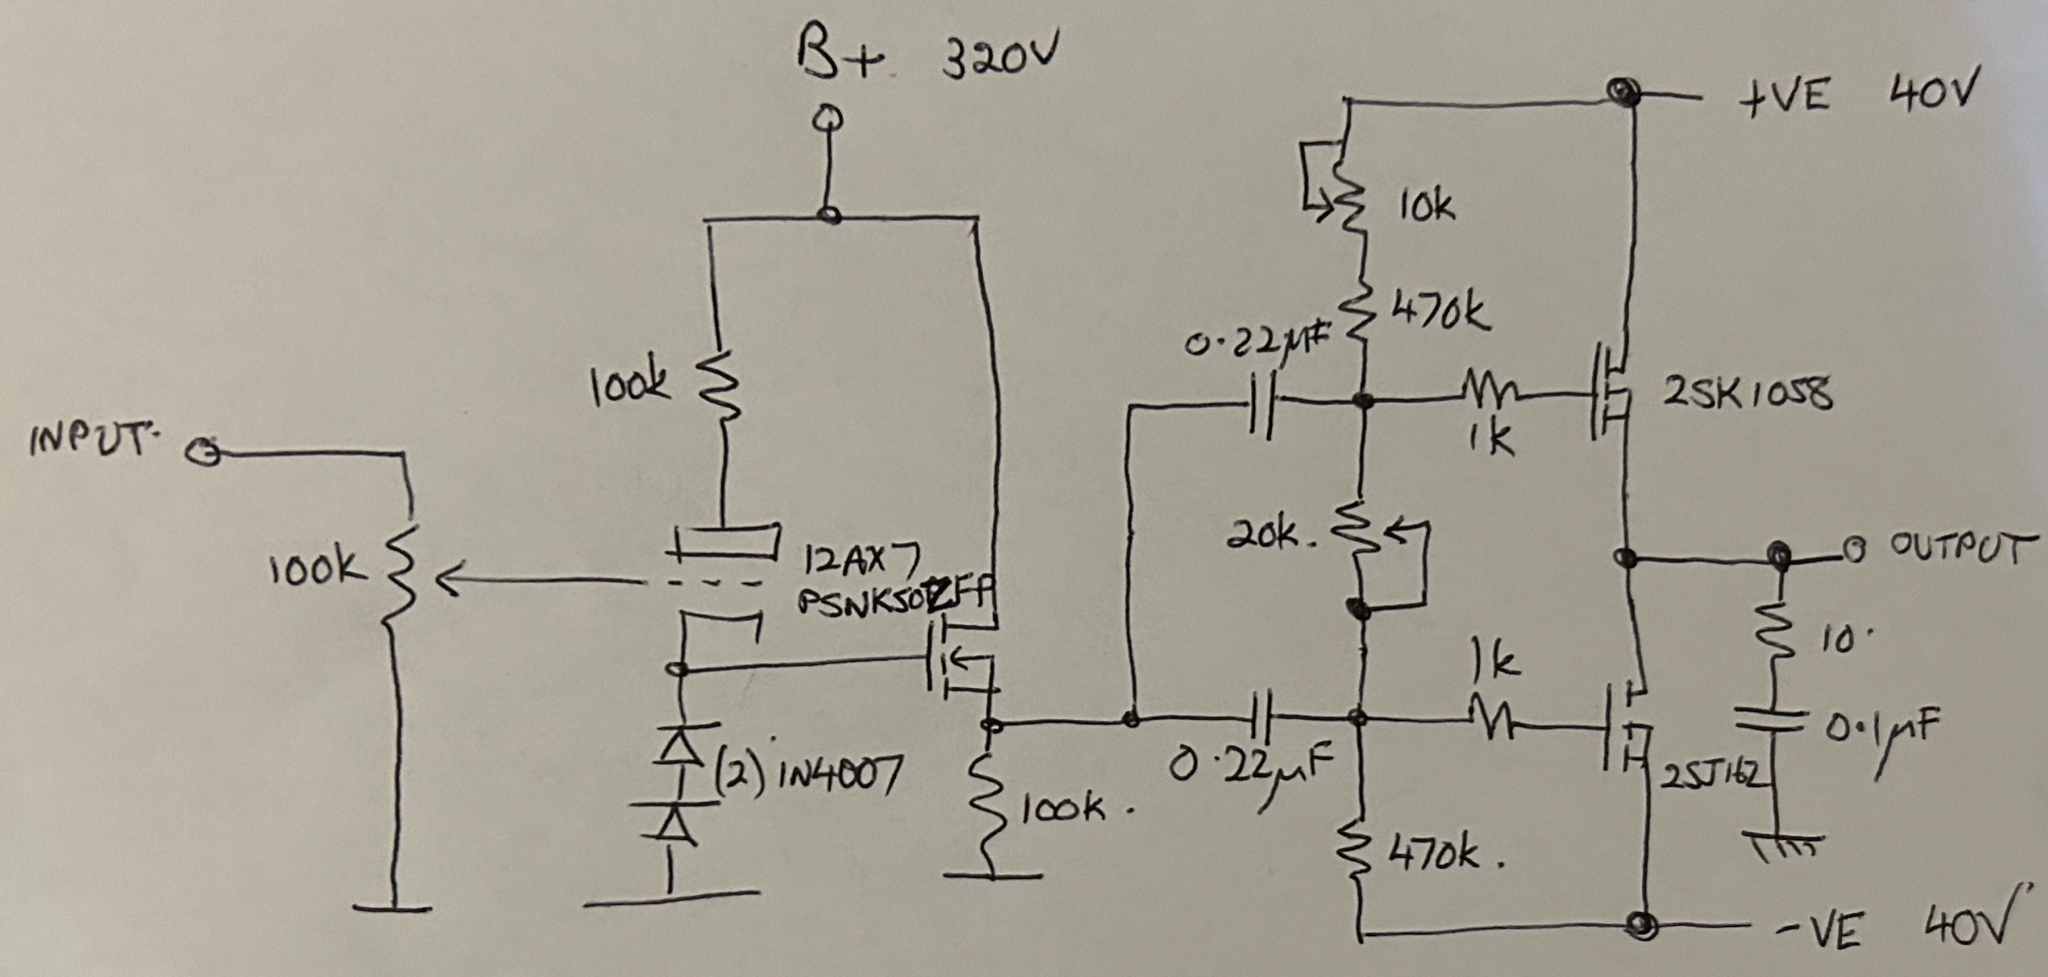 B+ 320V
+VE 40V
10k
470k
0.22µF
100k
2SK1058
1k
INPUT.
20k.
OUTPUT
100k
12AX7
10.
1k
0.1µF
(2) 1N4007
0.22µF
2SJ162
100k.
470k.
-VE 40V